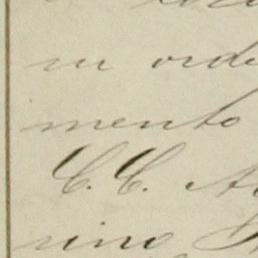 in orde
mento
C. C. A
rino